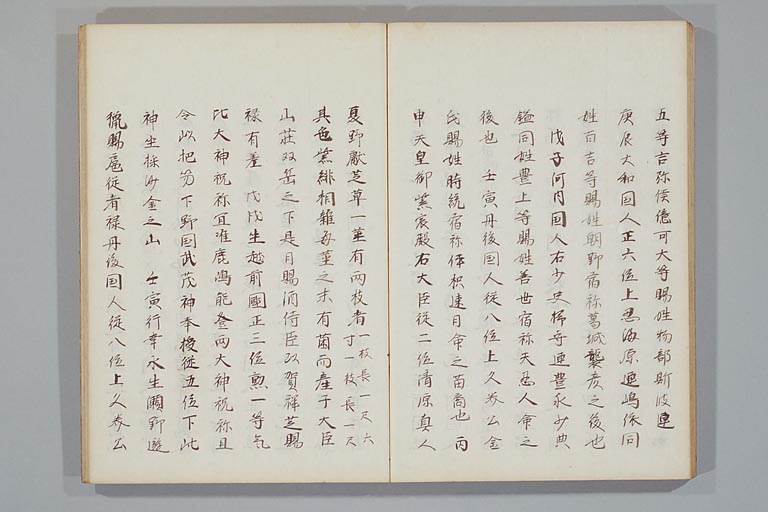 五等吉弥侯億可大等賜姓物部斯波連
庚辰大和国人正六位上忍海原連嶋依同
姓百吉等賜姓朝野宿祢葛城襲彦之後也
戊子河内国人右少史掃守連豊永少典
鎰同姓豊上等賜姓善世宿祢天忍人命之
後也　壬寅丹後国人從八位上久美公全
氏賜姓時統宿祢 枳速日命之苗裔也　丙
申天皇御紫宸殿右大臣從二位清原真人
夏野獻芝草一莖有兩枝者一枝長一尺六
寸一枝長一尺
其色紫緋相雜毎莖之末有菌而産于大臣
山莊双岳之下是月賜酒侍臣以賀祥芝賜
禄有差　戊戌坐越前國正三位勲一等気
比大神祝祢宜准鹿嶋能登兩大神祝祢且
令以把笏下野国武茂神奉授從五位下此
神坐採沙金之山　壬寅行幸水生瀬野遊
獵賜扈從者禄丹後国人從八位上久美公